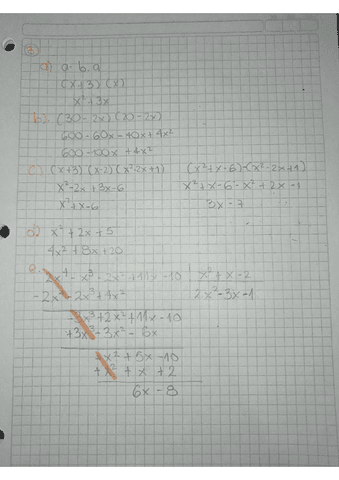 a) a · b · a
(x+3) (x)
x² + 3x
b) (30 - 2x) (20 - 2x)
600 - 60x - 40x + 4x²
600 - 100x + 4x²
c) (x+3) (x-2) - (x² - 2x + 1) (x² + x - 6) - (x² - 2x + 1)
x² - 2x + 3x - 6 x² + x - 6 - x² + 2x - 1
x² + x - 6 3x - 7
d) x² + 2x + 5
4x² + 8x + 20
e. 2x⁴ - x³ - 2x² + 11x - 10 | x² + x - 2
- 2x⁴ - 2x³ + 4x² 2x² - 3x - 1
- 3x³ + 2x² + 11x - 10
+ 3x³ - 3x² - 6x
- x² + 5x - 10
+ x² + x + 2
6x - 8